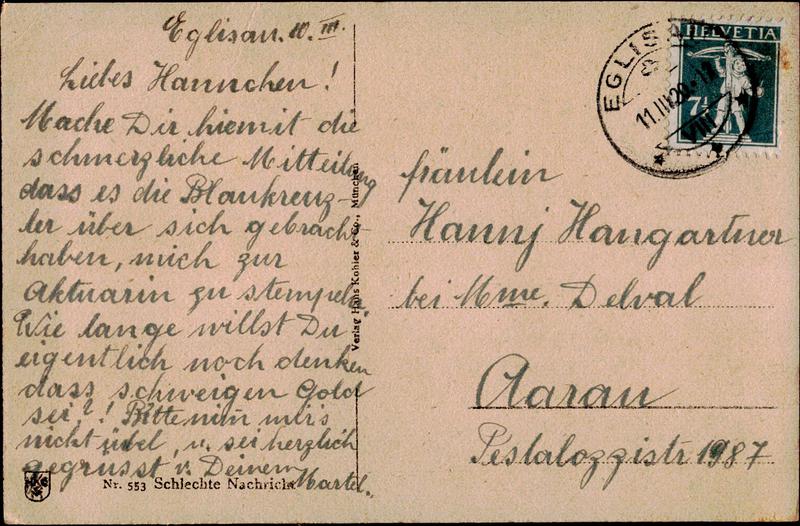 Eglisau. 10. III.
Liebes Hannchen!
Mache Dir hiemit die
schmerzliche Mitteilung
dass es die Blaukreuz-
ler über sich gebracht
haben, mich zur
Aktuarin zu stempeln.
Wie lange willst Du
eigentlich noch denken
dass schweigen Gold
sei?! Bitte nim̄ mir's
nicht übel, u. sei herzlich
gegrüsst v. Deinem
Martel.
Nr. 553 Schlechte Nachricht
Verlag Hans Kohler & Co., München
EGLISAU
11.III.29.-17
VIII
HELVETIA
7½
Fräulein
Hannj Hangartner
bei Mme. Delval
Aarau
Pestalozzistr 1987